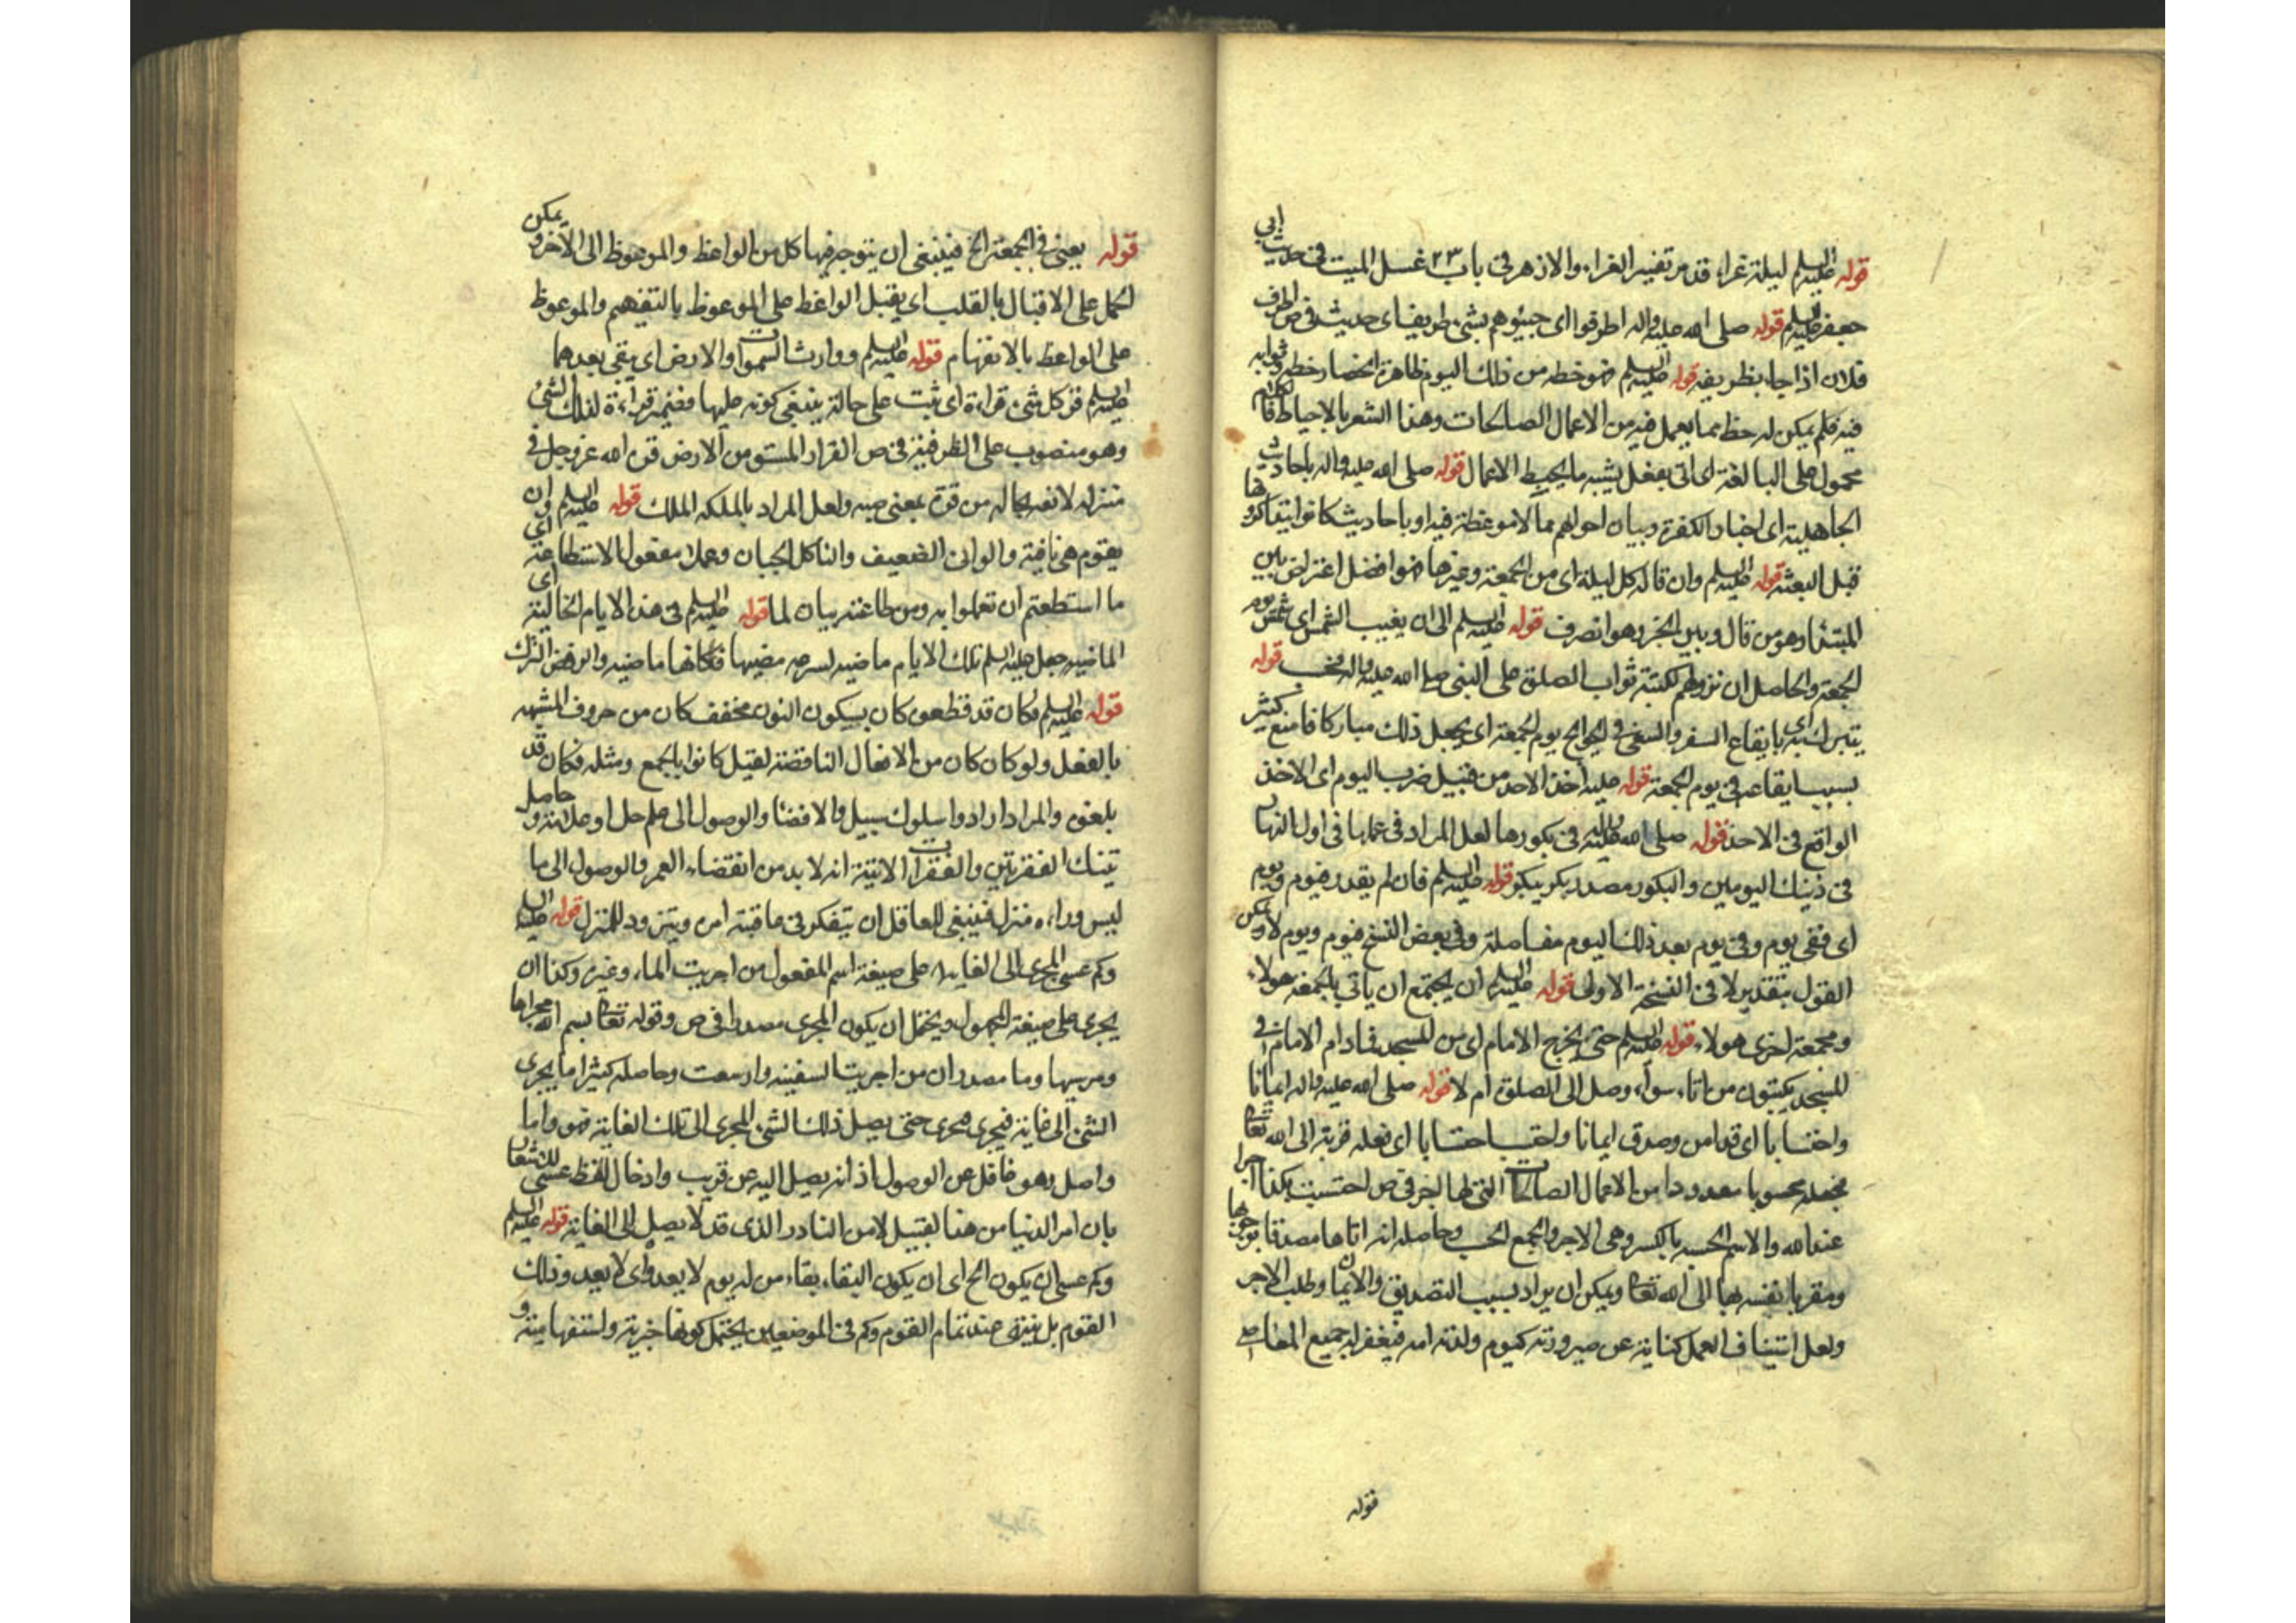 قوله عليه السلم ليلة غراء قد مر تفسير الغراء والازهر في باب ٢٣ غسل الميت في حديث ابي
جعفر عليه السلم قوله صلى الله عليه واله اطرقوا اى جيئوهم بشئ طريف اى حديث في ص اطرف
فلان اذا جاء بطريفة قوله عليه السلم فهو حظه من ذلك اليوم ظاهره انحصار حظه وثوابه
فيه فلم يكن له حظ مما يعمل فيه من الاعمال الصالحات وهذا اشعر بالاحباط فالكلام
محمول على المبالغة اى اتى بفعل يشبه ما يحبط الاعمال قوله صلى الله عليه واله باحاديث
الجاهلية اى اخبار الكفرة وبيان احوالهم مما لا موعظة فيه او باحاديث كانوا يتفاكروها
قبل البعثة قوله عليه السلم وان قاله كل ليلة اى من الجمعة وغيرها فهو افضل اعتراض بين
المبتدا وهو من قال وبين الخبر وهو انصرف قوله عليه السلم الى ان يغيب الشمس اى شمس يوم
الجمعة والحاصل ان نزولهم لكتبة ثواب الصلوة على النبي صلى الله عليه واله فحسب قوله
يتبرك به اى بايقاع السفر والسعى في الحوائج يوم الجمعة اى يجعل ذلك مباركا نامنع كثير
بسبب ايقاعه في يوم الجمعة قوله عليه اخذ الاحد من قبيل ضرب اليوم اى الاخذ
الواقع في الاحد قوله صلى الله عليه واله في بكورها لعل المراد في عملها في اول النهار
في ذينك اليومين والبكور مصدر بكر يبكر قوله عليه السلم فان لم يقدر فيوم ويوم
اى ففى يوم وفى يوم بعد ذلك اليوم مفاصلة وفى بعض النسخ فيوم ويوم لا ويمكن
القول بتقدير لا في النسخة الاولى قوله عليه السلم ان يجتمع ان ياتى بالجمعة هولاء
وبجمعة اخرى هولاء قوله عليه السلم حتى يخرج الامام اى من المسجد فمادام الامام في
المسجد يكتبون من اتاه سواء وصل الى الصلوة ام لا قوله صلى الله عليه واله ايمانا
واحتسابا اى قد امن وصدق ايمانا واحتسب احتسابا اى فعله قربة الى الله تعالى
فجعله محسوبا معدودا من الاعمال الصالحات التى لها اجر في ص احتسبت بكذا اجرا
عند الله والاسم الحسبة بالكسر وهى الاجر والجمع الحسب وحاصله انه اتاها مصدقا بوجوبها
ومقربا نفسه بها الى الله تعالى ويمكن ان يراد بسبب التصديق والايمان وطلب الاجر
ولعل استيناف العمل كناية عن صيرورته كيوم ولدته امه فيغفر له جميع المعاصي
قوله
قوله يعنى في الجمعة الخ فينبغى ان يتوجه فيها كل من الواعظ والموعوظ الى الآخر ويمكن
الحمل على الاقبال بالقلب اى يقبل الواعظ على الموعوظ بالتفهيم والموعوظ
على الواعظ بالاتفهام قوله عليه السلم ووارث السموات والارض اى يبقى بعدهما
عليه السلم قر كل شئ قراره اى ثبت على حالة ينبغى كونه عليها فضمير قراره لذلك الشئ
وهو منصوب على الظرفية في ص القرار المستقر من الارض قوله عز وجل في
منزله لانفه من قوة بمعنى صبه ولعل المراد بالملكه الملك قوله عليه السلم وان
يقوم هى نافية والوانى الضعيف والناكل الجبان وعملا مفعول الاستطاعة اى
ما استطعتم ان تعملوا به ومن طاعته بيان لما قوله عليه السلم في هذه الايام الخالية اى
الماضيه جعل عليه السلم تلك الايام ماضيه لسرعه مضيها فكانها ماضيه والرفض الترك
قوله عليه السلم فكان قد قطعوا كان بسكون النون مخفف كان من حروف المشبهه
بالفعل ولو كان كان من الافعال الناقصة لقيل كانوا بالجمع ومثله فكان قد
بلغوه والمراد ارادوا سلوك سبيل والافضاء والوصول الى علم جبل او علامة وحاصل
تينك الفقرتين والفقرات الاتية انه لا بد من انقضاء العمر والوصول الى ما
ليس وراءه منزل فينبغى للعاقل ان يتفكر في عاقبة امره ويتزود للمنزل قوله عليه السلم
وكم عسى المجرى الى الغاية على صيغة اسم المفعول من اجريت الماء وغيره وكذا ان
يجرى على صيغة المجهول ويحتمل ان يكون المجرى مصدرا في ص وقوله تعالى بسم الله مجراها
ومرسيها وما مصدران من اجريت السفينه وارسيت وحاصله كثيرا ما يجرى
الشئ الى غاية فيجرى مجرى حتى يصل ذلك الشئ المجرى الى تلك الغاية فهو واما
واصل وهو غافل عن الوصول اذ انه يصل اليه عن قريب وادخال لفظ عسى للاشعار
بان امر الدنيا من هذا القبيل لا من النادر الذى قد لا يصل الى الغاية قوله عليه السلم
وكم عسى ان يكون الخ اى ان يكون البقاء بقاء من له يوم لا يعدوه اى لا يعد وذلك
القوم بل ينتهى عند تمام القوم وكم في الموضعين يحتمل كونها خبرية واستفهامية و